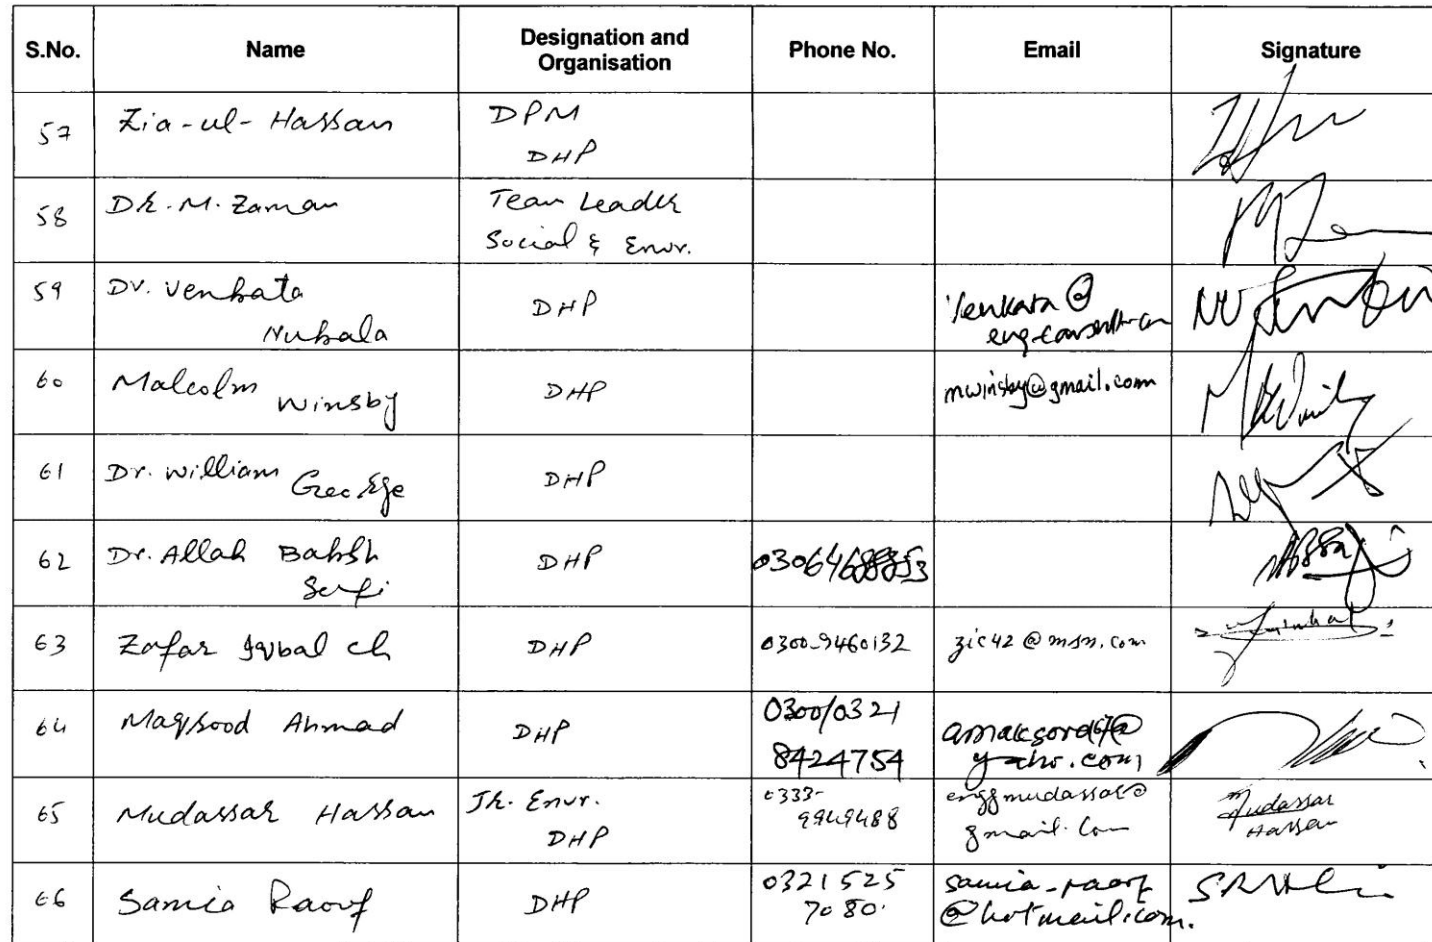 S.No. Name Designation and Organisation Phone No. Email Signature
57 Zia-ul-Hassan DPM
DHP
58 DR.M.Zaman Team Leader
Social & Envr.
59 Dr. Venkata DHP Venkata@
Nukala
60 Malcolm Winsby DHP mwinsby@gmail.com
61 Dr. William George DHP
62 Dr. Allah Bakhsh DHP
Sufi
63 Zafar Iqbal ch DHP 0300-9460132 zic42@msn.com
64 Maqsood Ahmad DHP 0300/0321
8424754 yahoo.com
65 Mudassar Hassan JR. Envr. 0333- enggmudassar@ Mudassar
DHP 9949488 gmail.com Hassan
66 Samia Raouf DHP 0321 525 samia-raouf
7080. @hotmail.com.